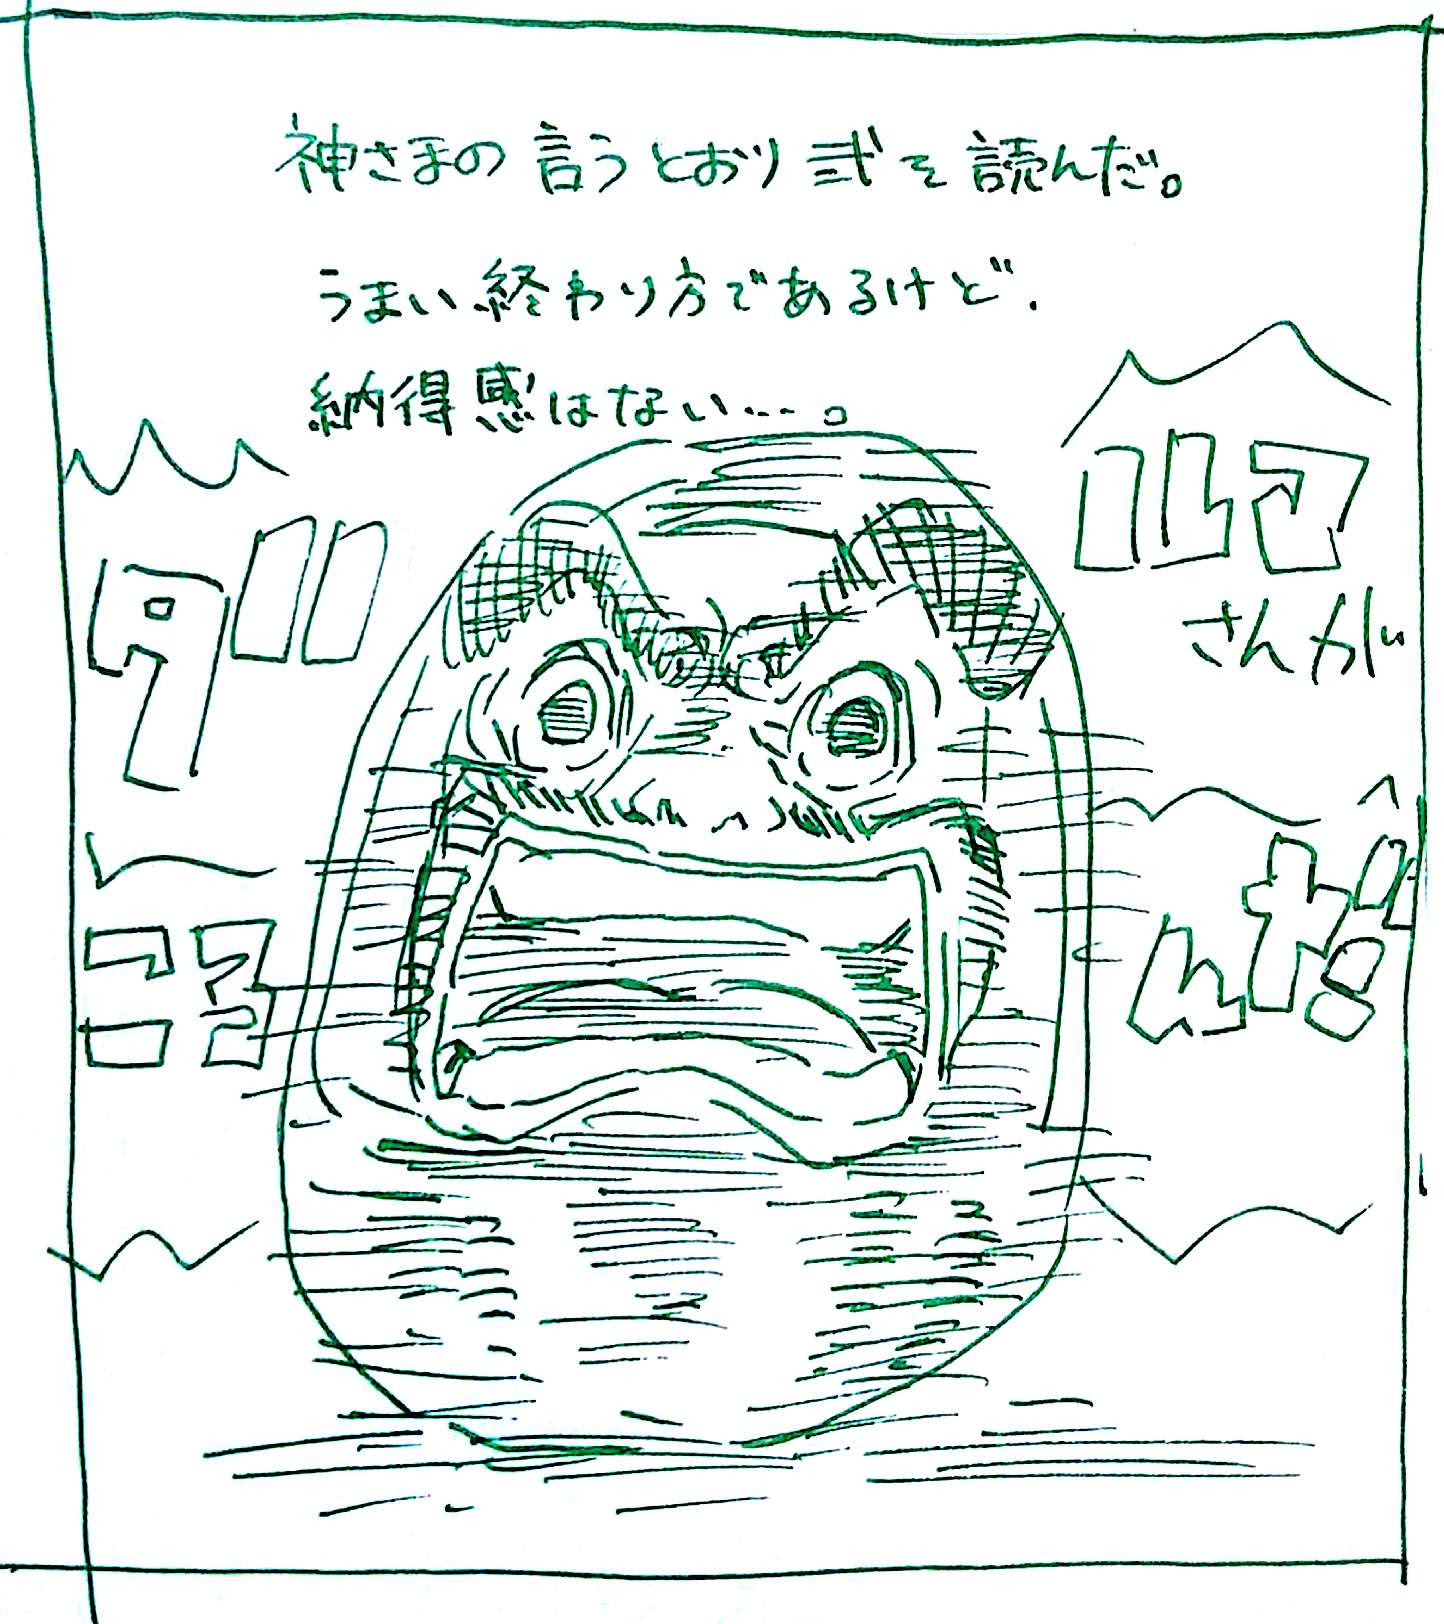 神さまの言うとおり弐を読んだ。
うまい終わり方であるけど.
納得感はない…。
ダルマ
さんが
ころんだ